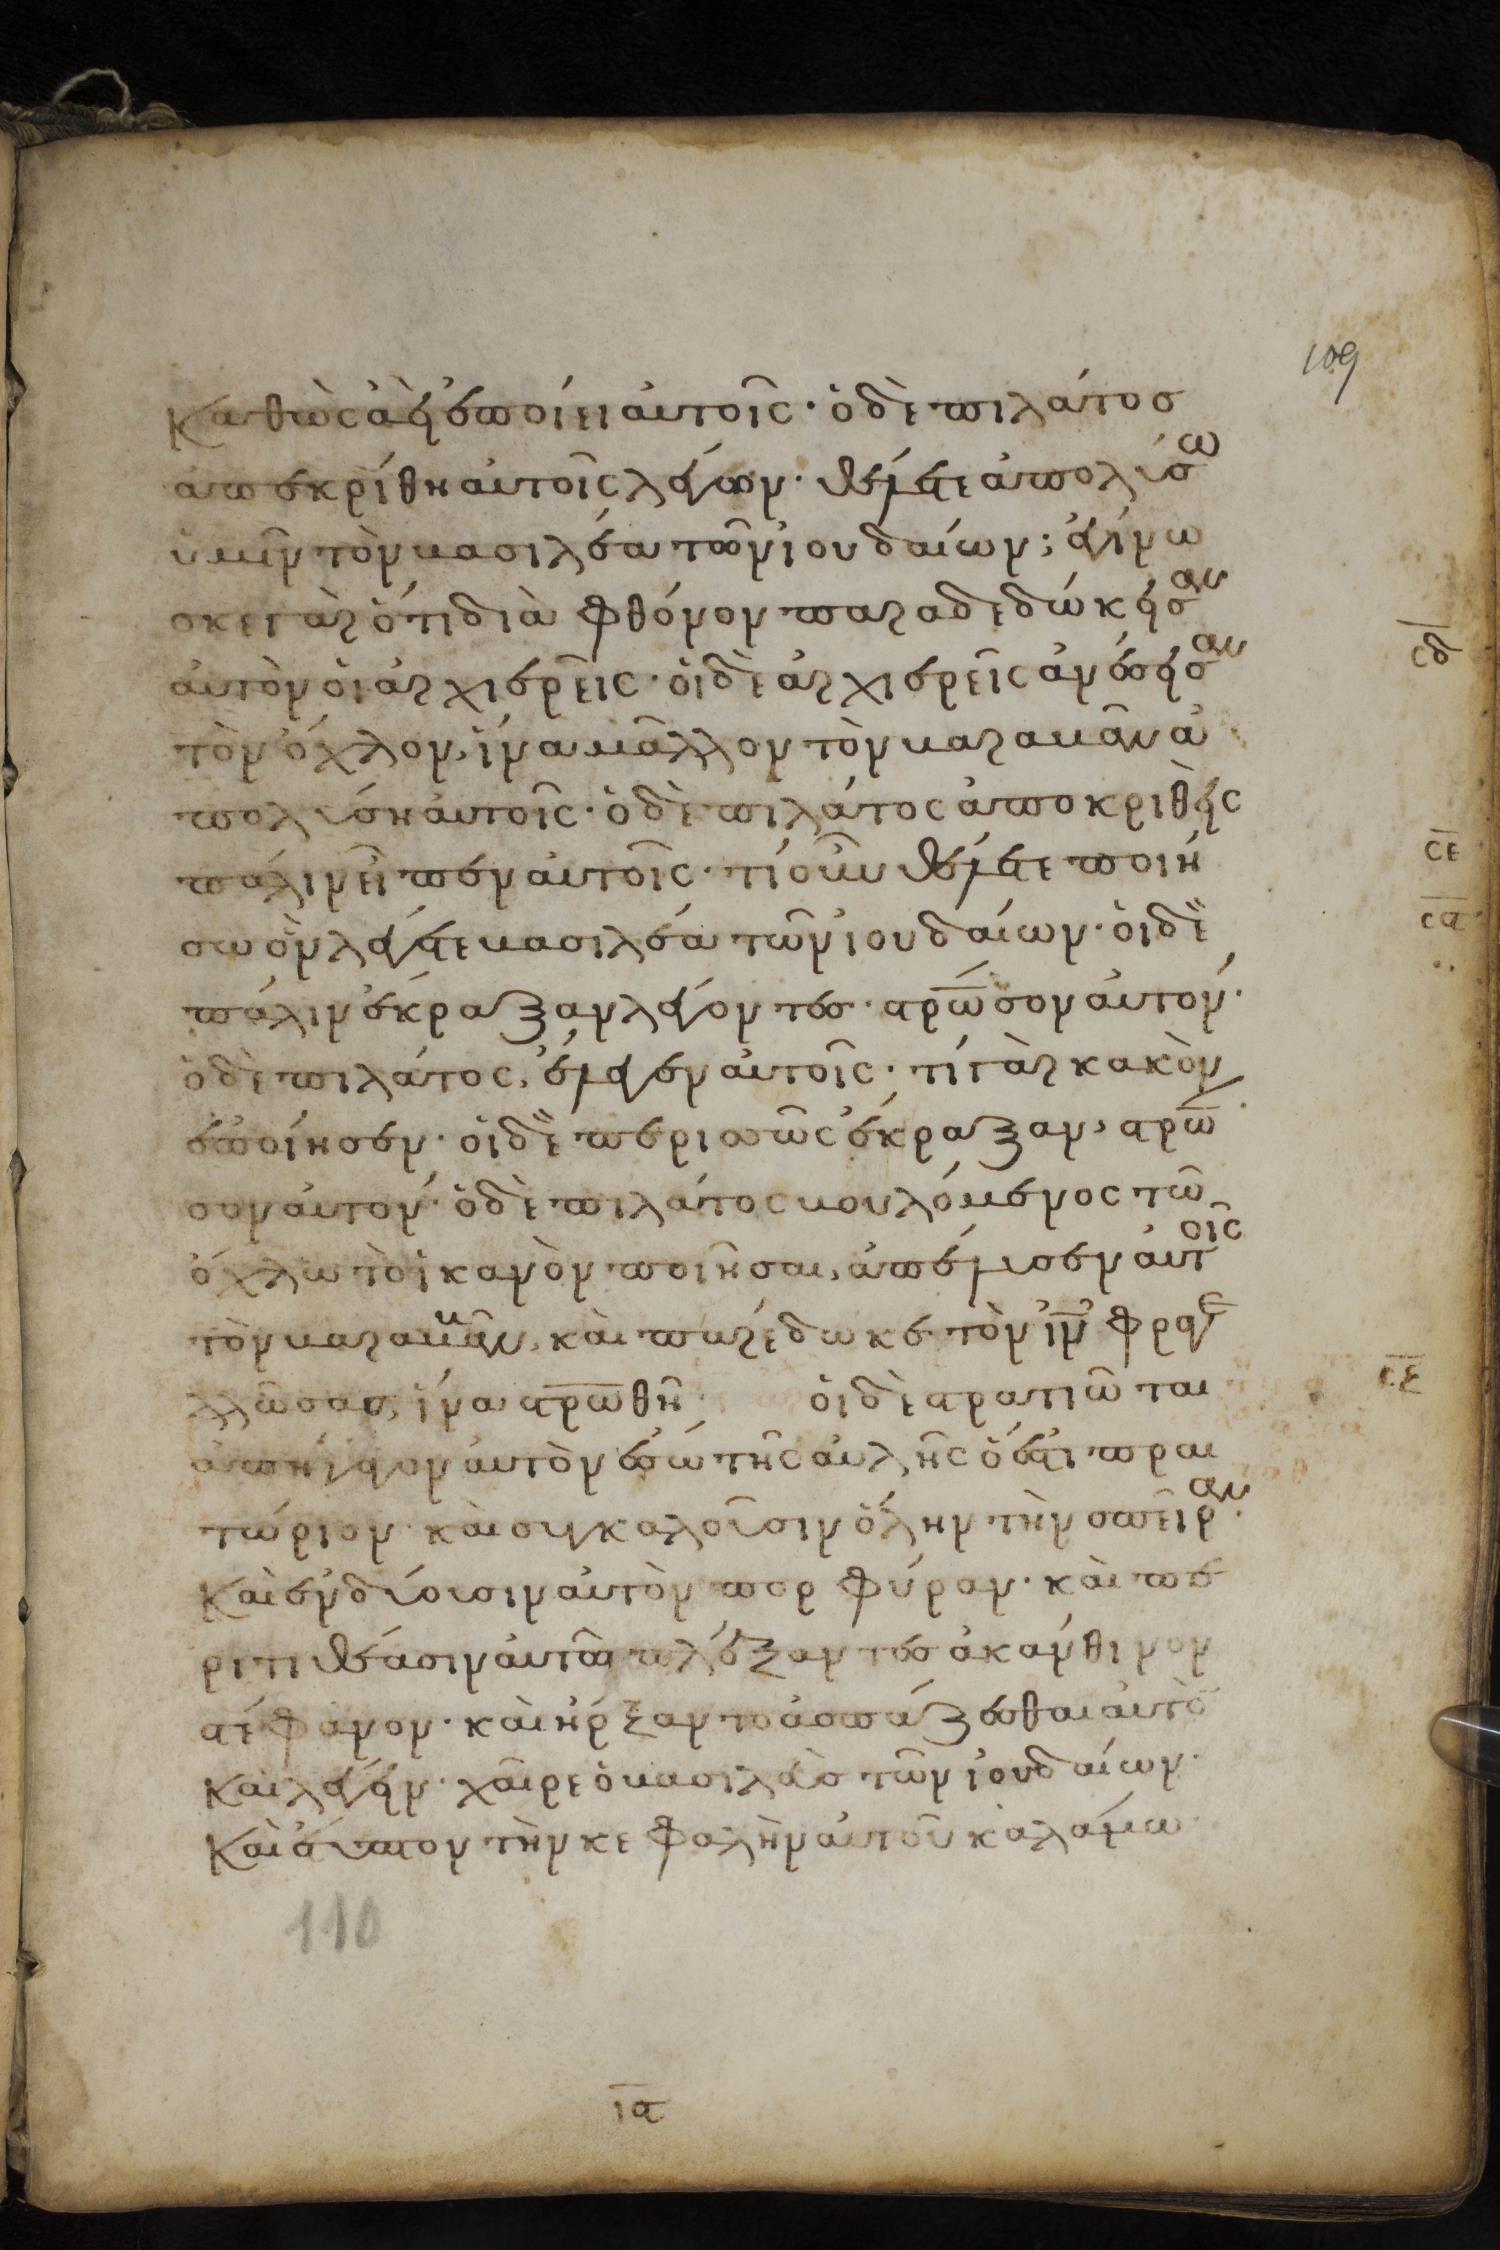 109
καθὼς ἀεὶ ἐποίει αὐτοῖς· ὁ δὲ πιλάτος
ἀπεκρίθη αὐτοῖς λέγων· θέλετε ἀπολύσω
ὑμῖν τὸν βασιλέα τῶν ἰουδαίων; ἐγίνω
σκε γὰρ ὅτι διὰ φθόνον παραδεδώκεισαν
αὐτὸν οἱ ἀρχιερεῖς· οἱ δὲ ἀρχιερεῖς ἀνέσεισαν
τὸν ὄχλον, ἵνα μᾶλλον τὸν βαραββᾶν ἀ
πολύση αὐτοῖς· ὁ δὲ πιλάτος ἀποκριθεὶς
πάλιν εἶπεν αὐτοῖς· τί οὖν θέλετε ποιή
σω ὃν λέγετε βασιλέα τῶν ἰουδαίων· οἱ δὲ
πάλιν ἔκραξαν λέγοντες· στρω̅σον αὐτόν·
ὁ δὲ πιλάτος, ἔλεγεν αὐτοῖς· τί γὰρ κακὸν
ἐποίησεν· οἱ δὲ περισσῶς ἔκραξαν, στρω̅
σον αὐτόν· ὁ δὲ πιλάτος βουλόμενος τῶ
ὄχλω τὸ ἱκανὸν ποιῆσαι, ἀπέλυσεν αὐτοῖς
τὸν βαραββᾶν, καὶ παρέδωκε τὸν ι̅ν̅ φραγε
λλώσας, ἵνα στρω̅θῆ· οἱ δὲ στρατιῶται
ἀπήγαγον αὐτὸν ἔσω τῆς αὐλῆς ὅ ἐστι πραι
τώριον· καὶ συγκαλοῦσιν ὅλην τὴν σπεῖραν·
καὶ ἐνδύουσιν αὐτὸν πορφύραν· καὶ πε
ριτιθέασιν αὐτῶ πλέξαντες ἀκάνθινον
στέφανον· καὶ ἤρξαντο ἀσπάζεσθαι αὐτὸ̅
καὶ λέγειν· χαῖρε ὁ βασιλεὺς τῶν ἰουδαίων·
καὶ ἔτυπτον τὴν κεφαλὴν αὐτοῦ καλάμω
σδ
σε
σς
110
ια